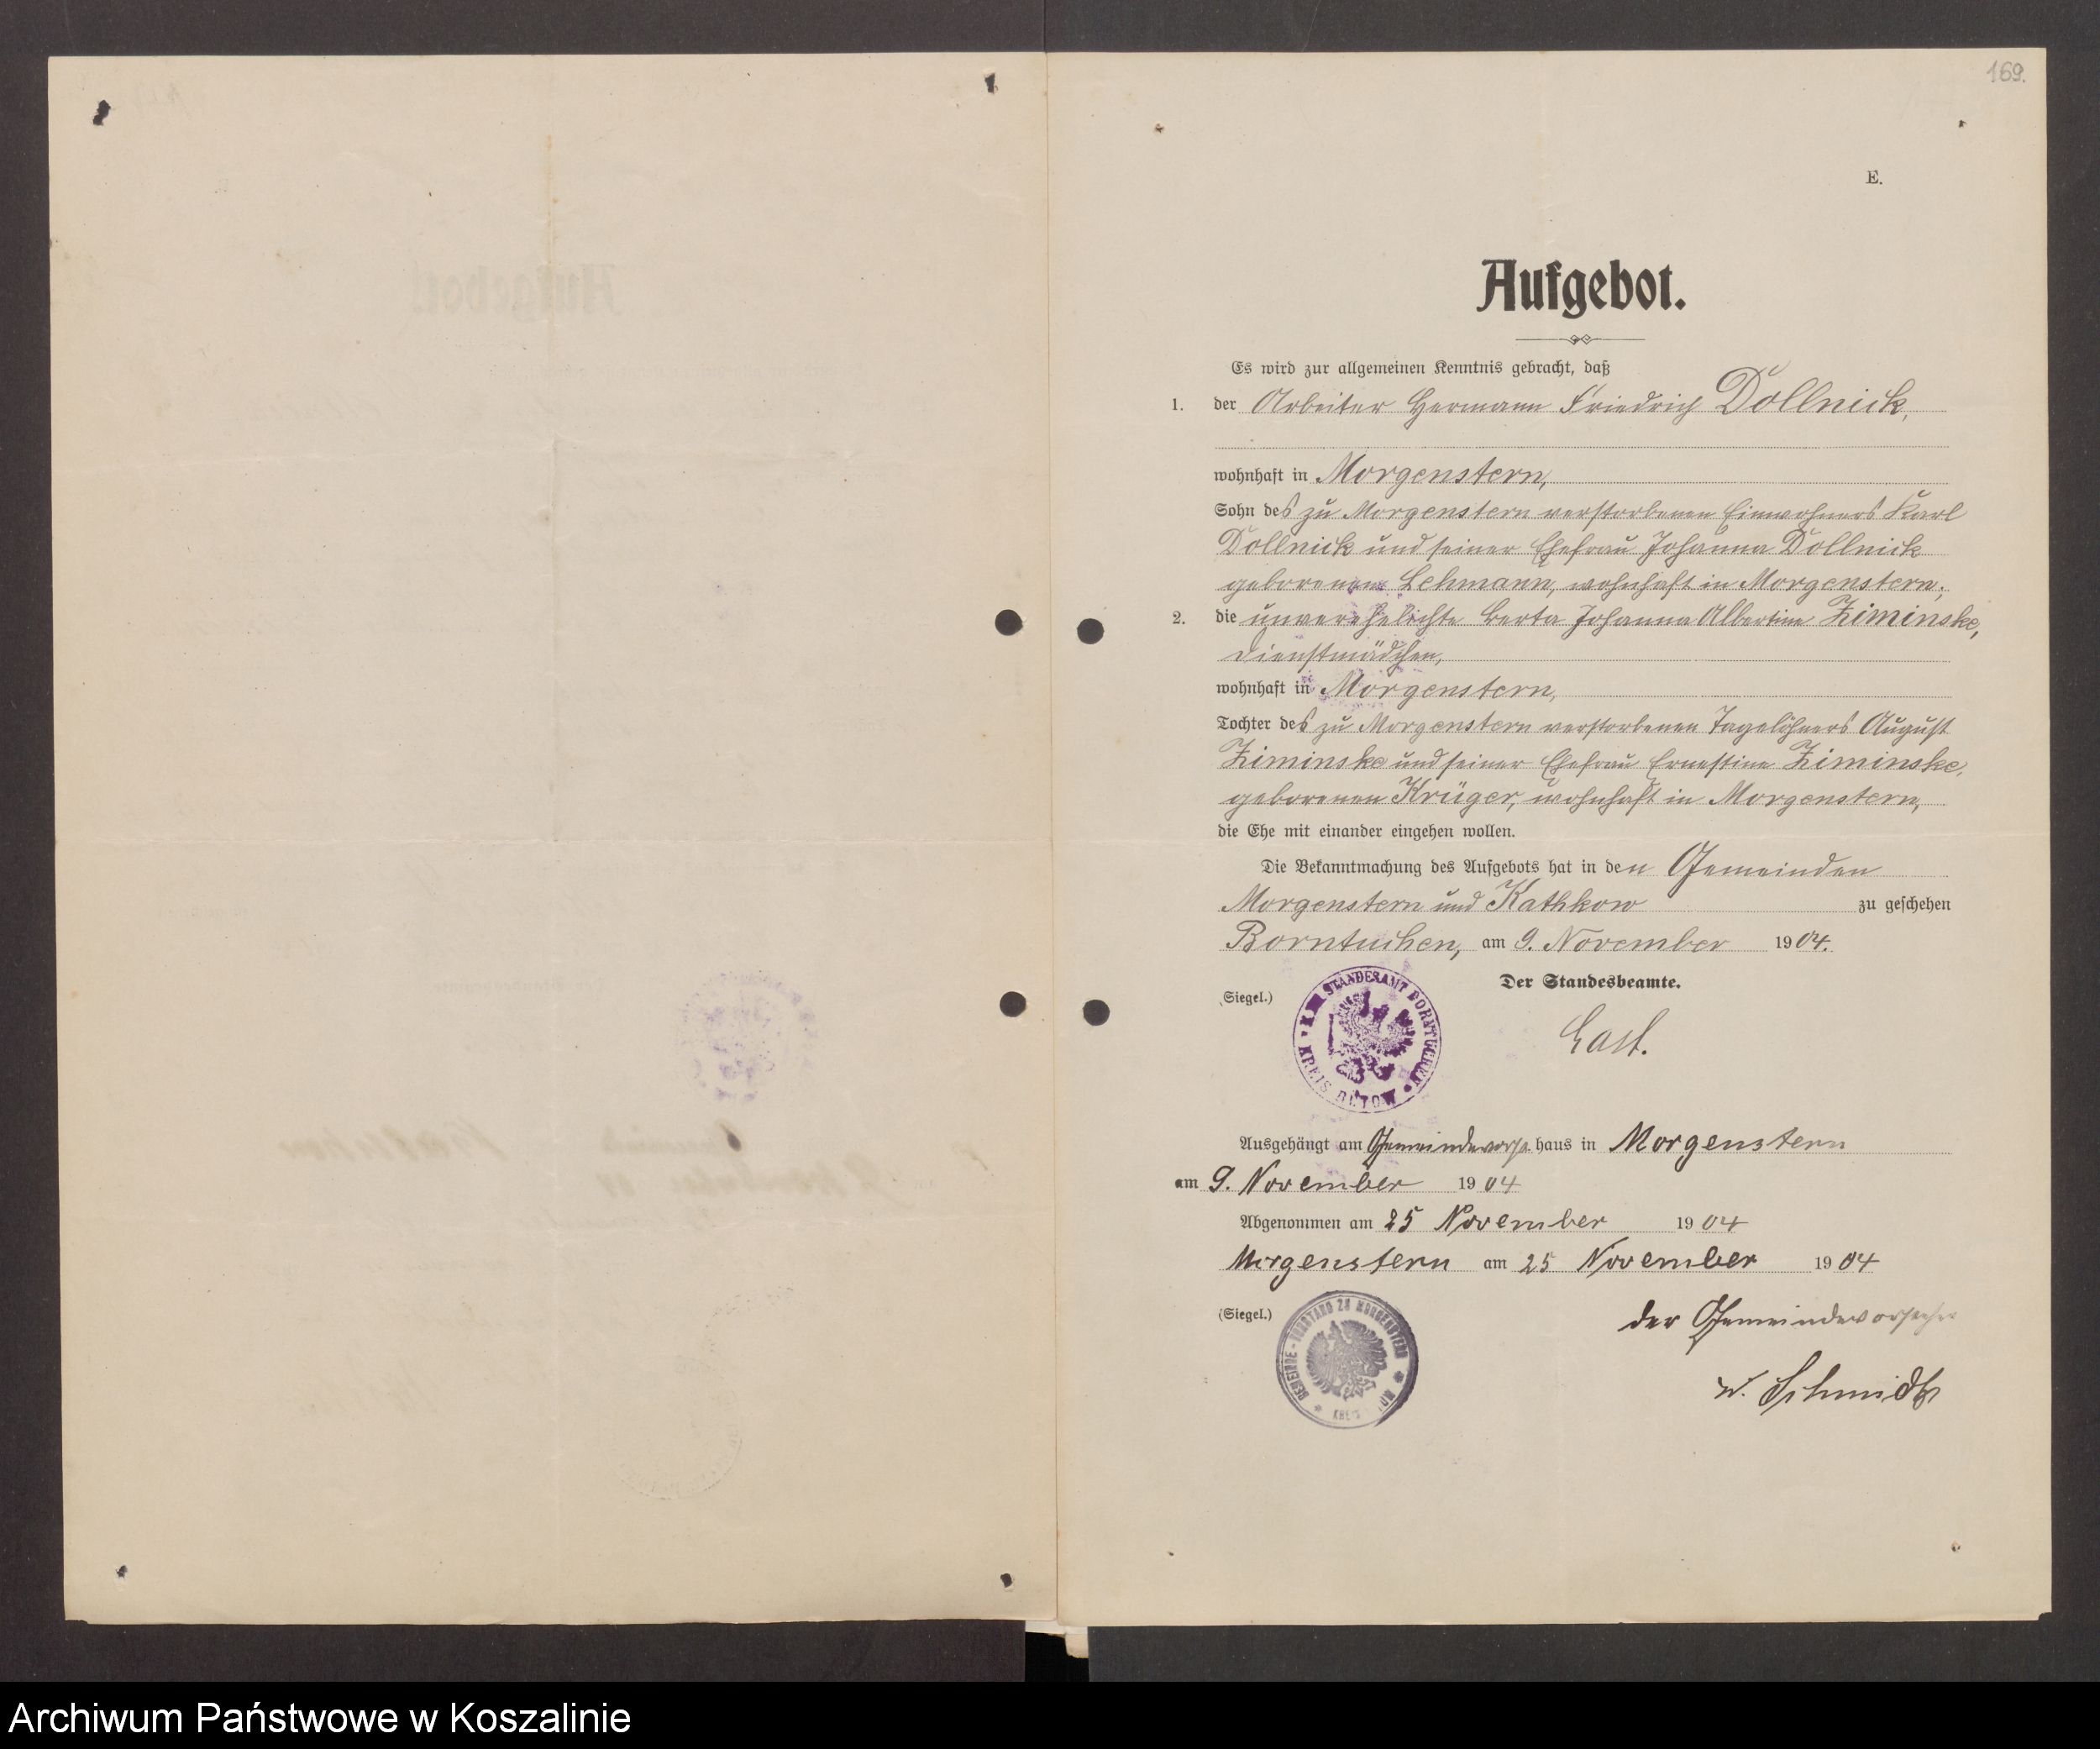 169.
E.
Aufgebot.
Es wird zur allgemeinen Kenntnis gebracht, daß
1. der Arbeiter Hermann Friedrich Dollnick,
wohnhaft in Morgenstern,
Sohn des zu Morgenstern verstorbenen Einwohners Karl
Dollnick und seiner Ehefrau Johanna Dollnick
geborenen Lehmann, wohnhaft in Morgenstern;
2. die unverehelichte Berta Johanna Albertine Ziminske,
Dienstmädchen,
wohnhaft in Morgenstern,
Tochter des zu Morgenstern verstorbenen Tagelöhners August
Ziminske und seiner Ehefrau Ernestine Ziminske,
geborenen Krüger, wohnhaft in Morgenstern,
die Ehe mit einander eingehen wollen.
Die Bekanntmachung des Aufgebots hat in den Gemeinden
Morgenstern und Kathkow zu geschehen
Borntuchen, am 9. November 1904.
(Siegel.) Der Standesbeamte.
STANDESAMT BORNTUCHEN
KREIS BÜTOW
Ausgehängt am Gemeindevorst. haus in Morgenstern
am 9. November 1904
Abgenommen am 25 November 1904
Morgenstern am 25 November 1904
(Siegel.) der Gemeindevorsteher
GEMEINDE-VORSTAND ZU MORGENSTERN
KREIS
W. Schmidt
Archiwum Państwowe w Koszalinie